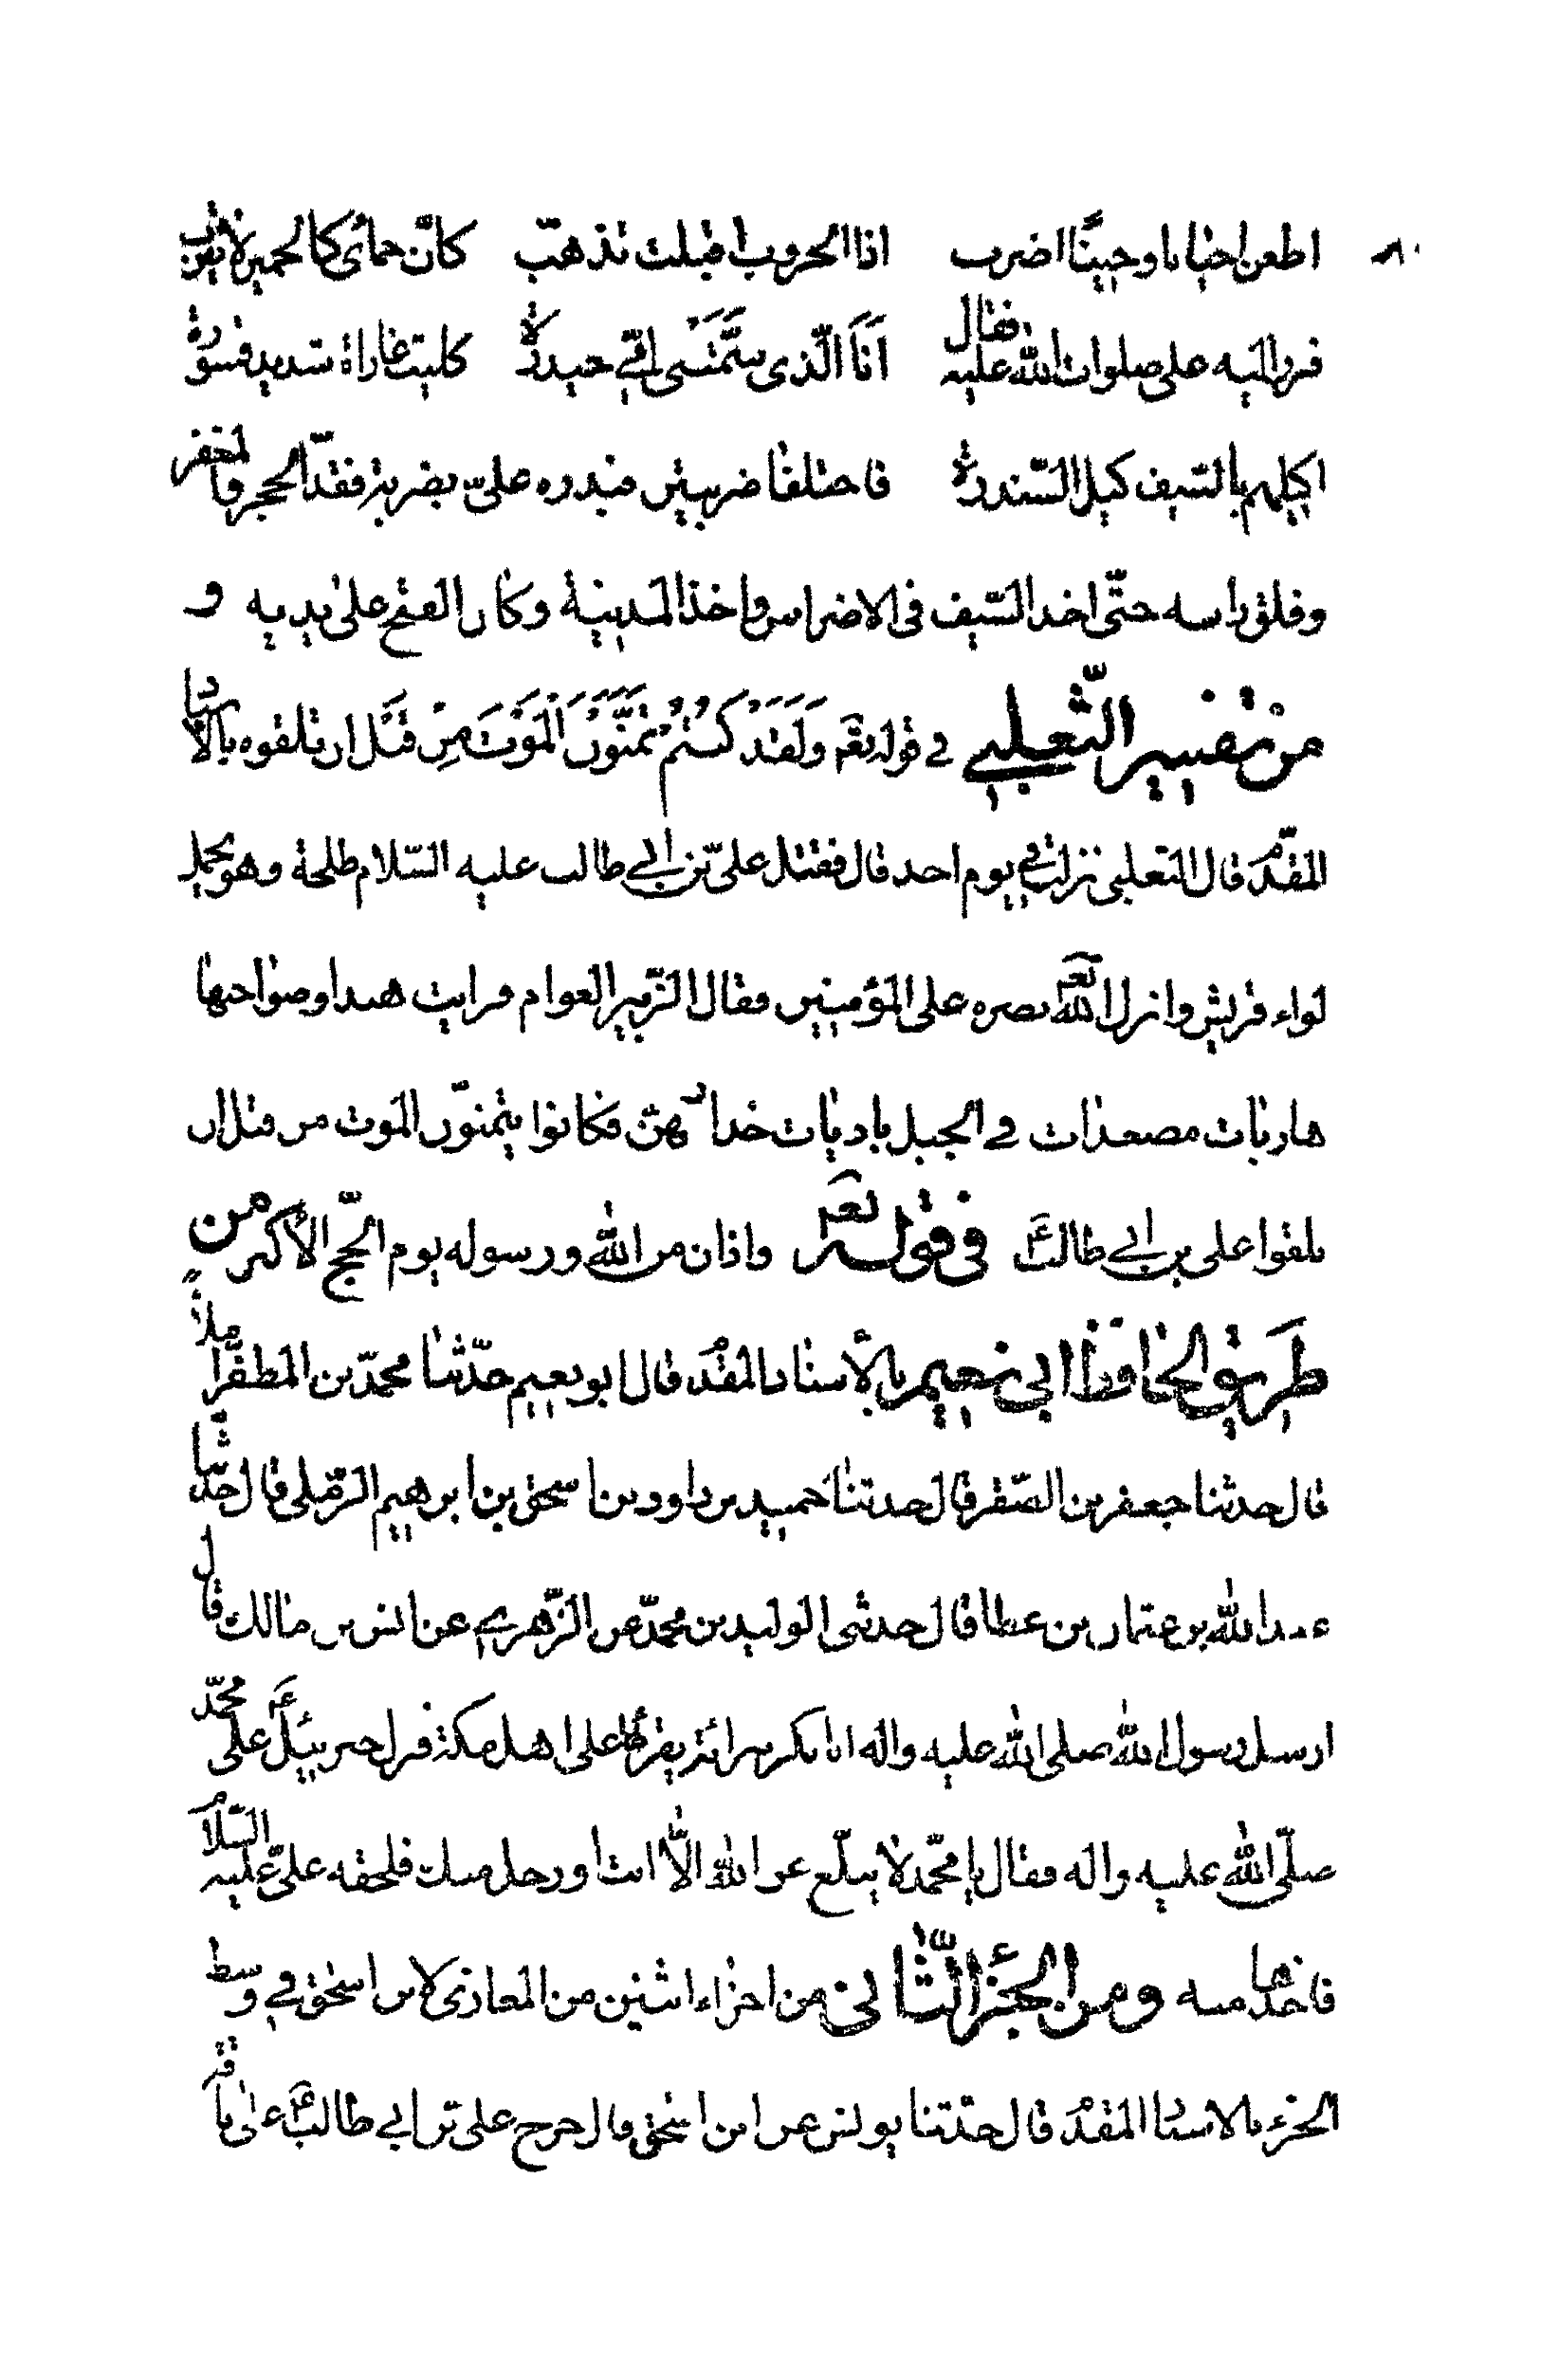 اطعن احيانا وحينًا اضرب اذا الحروب اقبلت تذهب كانّ حمائى كالحمير لا يقرب
فبرز اليه على صلوات الله عليه فقال اَنَا الّذى سمّتنى امّي حيدرة كليث غاباة شديد قسورة
اكيلهم بالسّيف كيل السّندرة فاختلفا ضربتين فبدره علىّ بضربة فقدّ الحجر والمغفر
وفلق راسه حتّى اخذ السّيف فى الاضراس واخذ المدينة وكان الفتح على يديه و
من تفسير الثّعلبي في قوله تعَ وَلَقَدْ كُنتُمْ تَمَنَّوْنَ الْمَوْتَ مِن قَبْل ان تلقوه بالاسناد
المقدّم قال الثعلبى نزلت في يوم احد قال فقتل علىّ بن ابي طالب عليه السّلام طلحة وهو يحمل
لواء قريش وانزل الله تعَ نصره على المؤمنين وقال الزّبير العوام فرايت هندا وصواحبها
هاربات مصعدات في الجبل باديات خدامهنّ فكانوا يتمنّون الموت من قبل ان
يلقوا على بن ابي طالب عَ في قوله تعَ واذان من الله ورسوله يوم الحجّ الأكبر من
طريق الحافظ ابي نعيم بالأسناد المقدّم قال ابو نعيم حدّثنا محمّد بن المظفّر املاءً
قال حدثنا جعفر بن الصّقر قال حدثنا حميد بن داود بن اسحق بن ابرهيم الرّملى قال حدّثنا
عبد الله بن عثمان بن عطا قال حدثنى الوليد بن محمّد عن الزّهري عن انس بن مالك قال
ارسل رسول الله صلى الله عليه واله ابا بكر ببرائة يقرئها على اهل مكّة فنزل جبرئيل عَ على محمّد
صلّى الله عليه واله وقال يا محمّد لا يبلّغ عن الله الّا انت او رجل منك فلحقه علىّ عليه السّلام
فاخذها منه ومن الجزء الثّاني من اجزاء اثنين من المغازى لابن اسحق في وسط
الجزء بالاسناد المقدّم قال حدّثنا يونس عن ابن اسحق قال خرج على بن ابي طالب عَ على ناقة